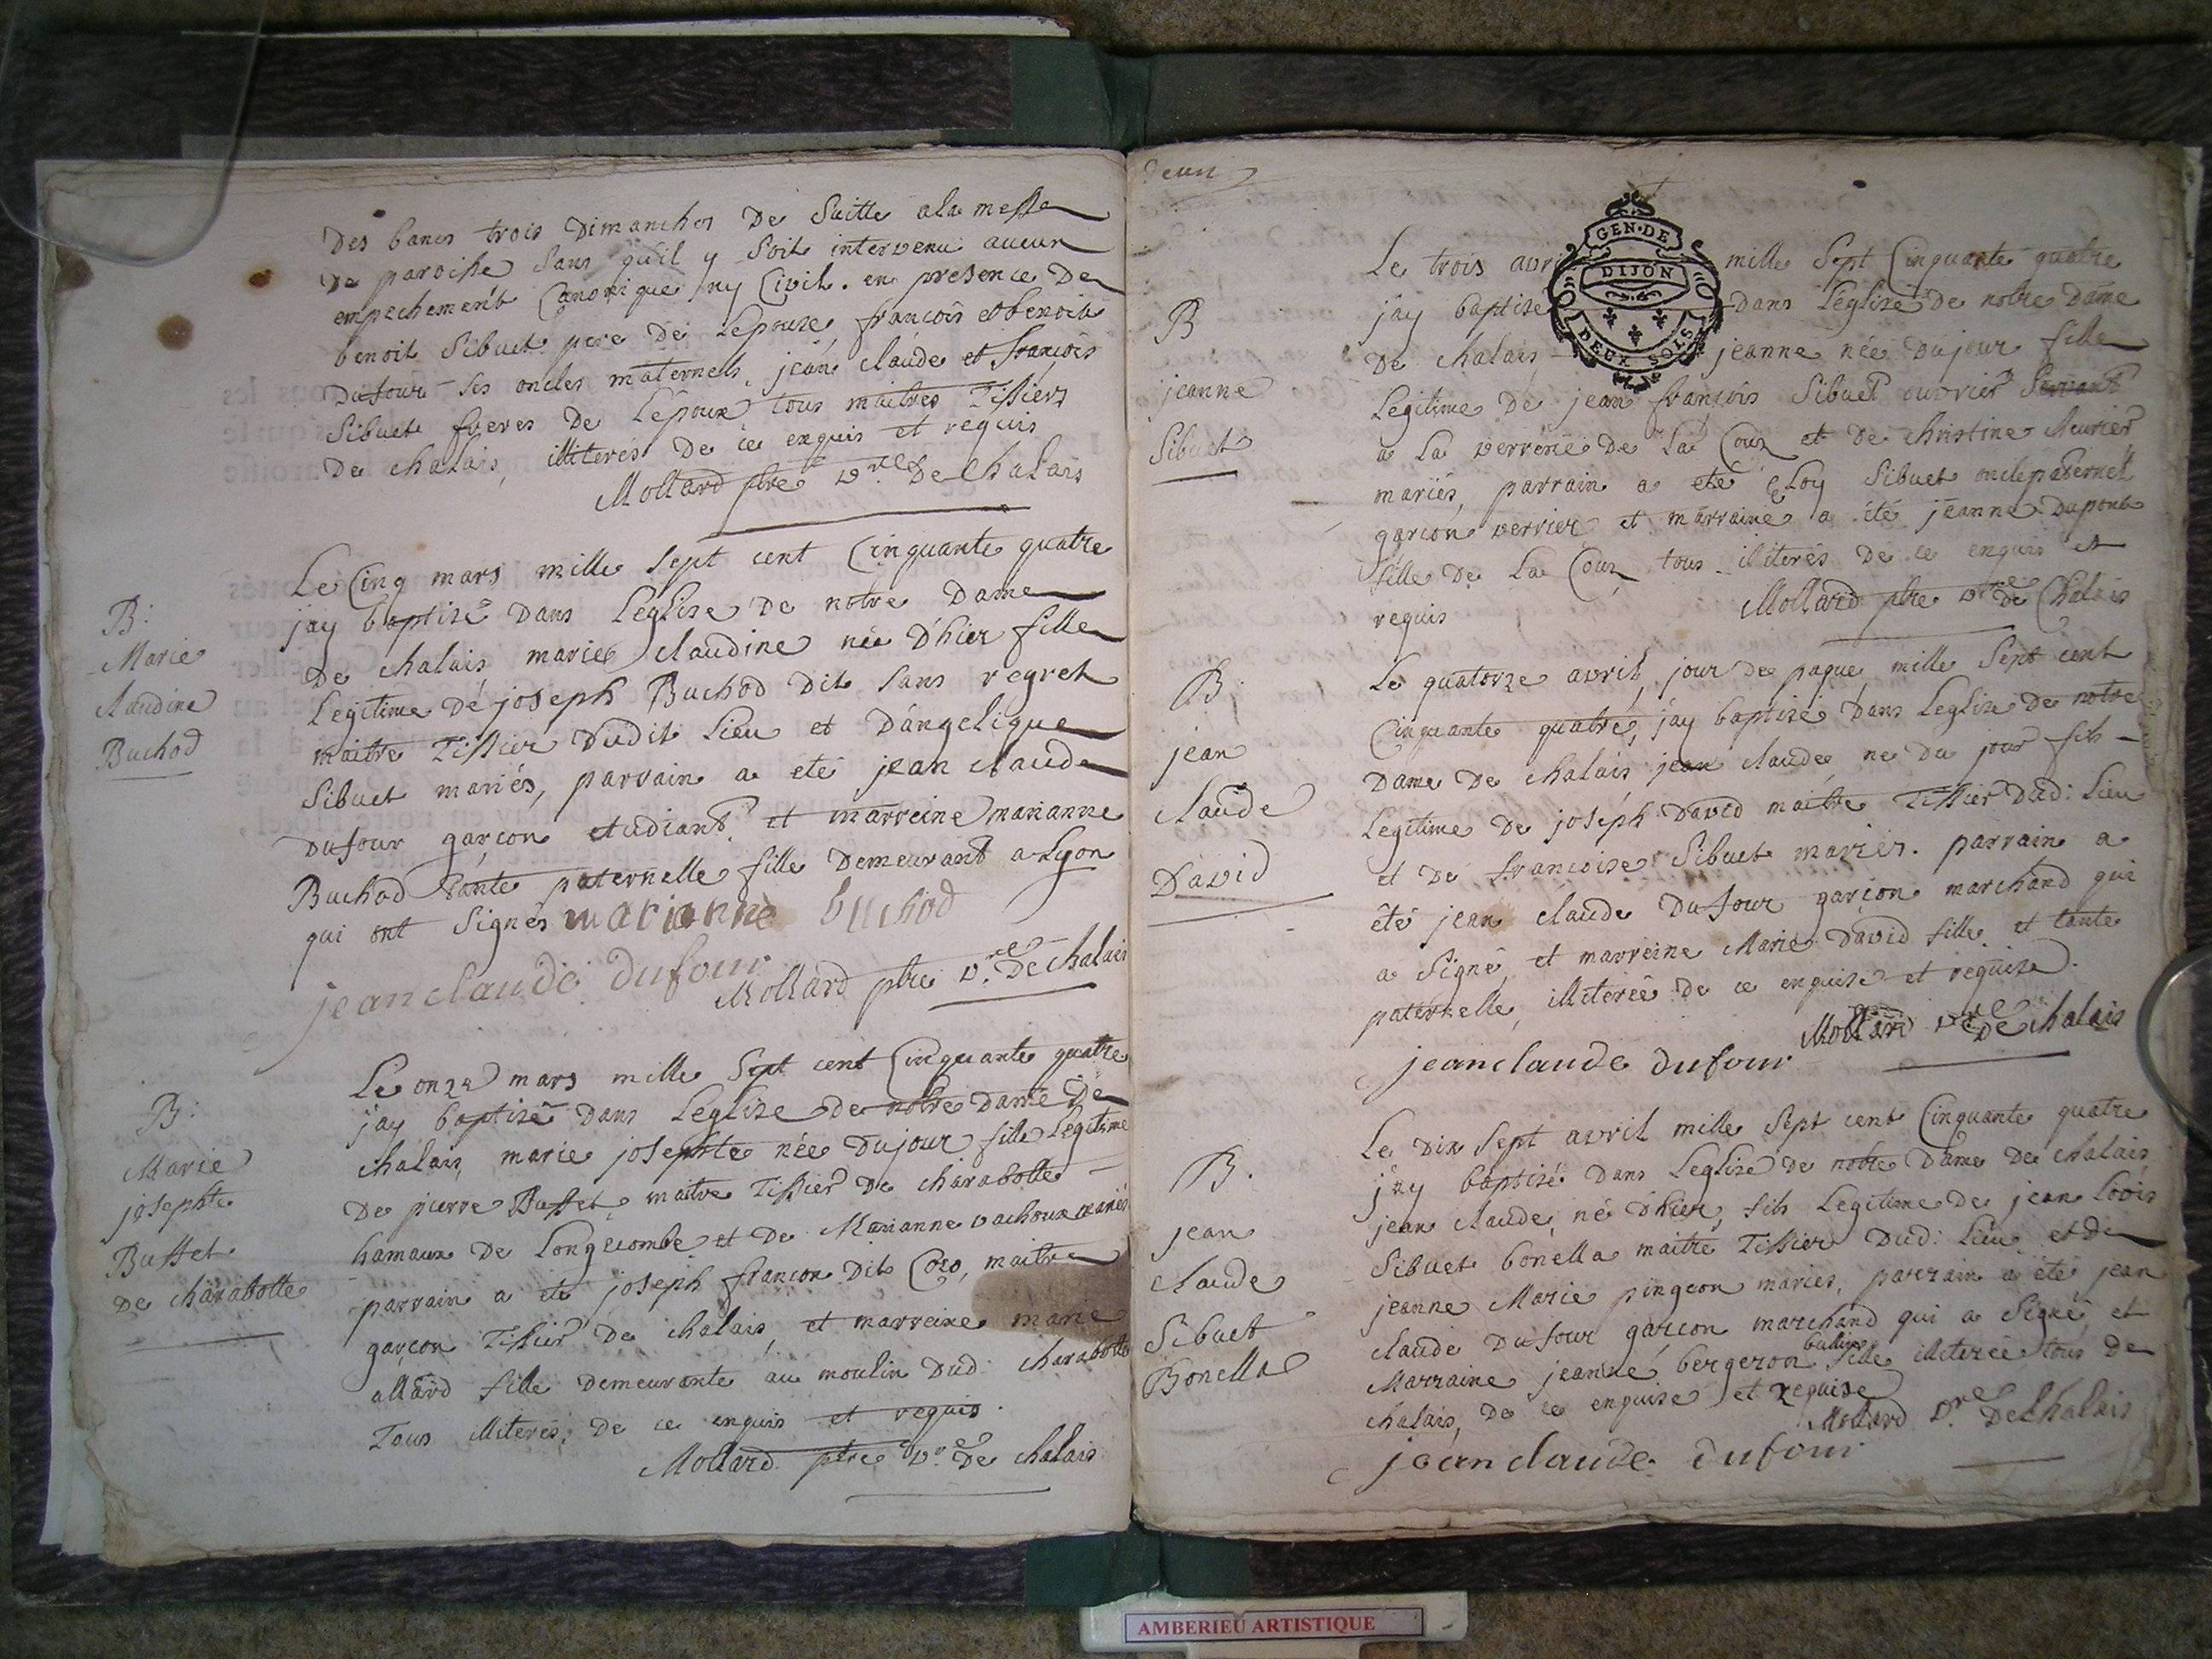 Des bans trois Dimanches De Suitte a la messe
De paroisse Sans qu'il y Soit intervenu aucun
empechement Canonique ny Civil. en presence De
benoit Sibuet pere De Lepouse, francois et benoit
Dufour Ses oncles maternels, jean claude et francois
Sibuet freres De Lépoux tous maitres Tissiers
De chalais, illiterés De ce enquis et requis
Mollard ptre v.re De Chalais
B:
Marie
claudine
Buchod
Le Cinq mars mille Sept cent Cinquante quatre
jay baptisé Dans Leglise De notre Dame
De chalais, marie claudine née D'hier fille
Legitime De joseph Buchod Dit Sans regret
maitre Tissier Dudit Lieu et D'angelique
Sibuet mariés, parrain a eté jean claude
Dufour garçon etudiant et marreine marianne
Buchod tante paternelle fille Demeurant a Lyon
qui ont Signés marianne buchod
jean claude dufour
Mollard ptre v.re De Chalais
B:
Marie
josephte
Buffet
De charabotte
Le onze mars mille Sept cent Cinquante quatre
jay baptisé Dans Leglise de notre Dame De
chalais, marie josephte née Dujour fille Legitime
De pierre Buffet maitre Tissier De charabotte
hamaux De Longecombe et De Marianne vachoux mariés
parrain a eté joseph francon Dit Coro, maitre
garçon Tissier De chalais, et marreine marie
allard fille Demeurante au moulin Dud: charabotte
Tous illiterés, De ce enquis et requis.
Mollard ptre v.re De chalais
GEN·DE
DIJON
DEUX SOLS
B
jeanne
Sibuet
Le trois avri mille Sept Cinquante quatre
jay baptisé dans Leglise De notre Dame
De chalais jeanne née Dujour fille
Legitime De jean françois Sibuet ouvrier Servant
a La verrerie De La Coux et De christine Meurier
mariés, parrain a eté eloy Sibuet oncle paternel
garçon verrier et marraine a été jeanne Dupont
fille De La Coux tous illiterés De ce enquis et
requis
Mollard ptre v.re De Chalais
B.
jean
claude
David
Le quatorze avril, jour De paque, mille Sept cent
Cinquante quatre, jay baptisé Dans Leglise De notre
Dame De chalais jean claude, ne Du jour fils
Legitime De joseph David maitre Tissier Dud: Lieu
et De francoise Sibuet mariés. parrain a
été jean claude Dufour garçon marchand qui
a Signé, et marreine Marie David fille et tante
paternelle, illiterée De ce enquise et requise.
Mollard v.re De chalais
jeanclaude dufour
B.
jean
claude
Sibuet
Bonella
Le Dix Sept avril mille Sept cent Cinquante quatre
jay baptisé Dans Leglise De notre Dame De chalais,
jean claude, né D'hier, fils Legitime De jean Loüis
Sibuet bonella maitre Tissier Dud: Lieu, et De
jeanne Marie pingeon mariés, parrain a été jean
claude Dufour garçon marchand qui a Signé, et
Marraine jeanne bergeron fille illiterée tous De
chalais, De ce enquise et requise
Mollard v.re De Chalais
jeanclaude dufour
AMBERIEU ARTISTIQUE